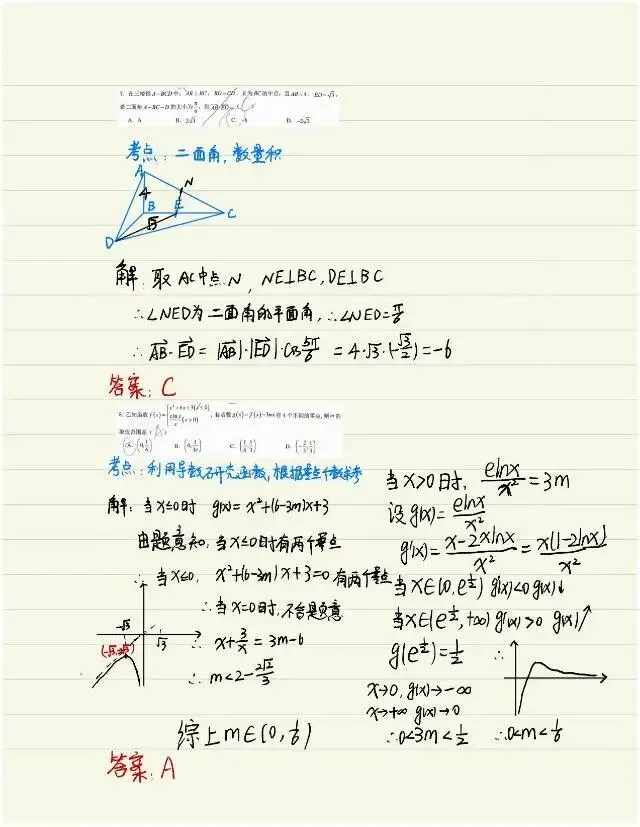 7. 在三棱锥A-BCD中, AB⊥BC, BD=CD, E为BC的中点, 且AB=4, ED=√3,
若二面角A-BC-D的大小为π/6, 则AB·ED=
A. 6 B. 2√3 C. -6 D. -2√3
考点: 二面角, 数量积
A
4
N
B
E
C
√3
D
解 取AC中点N, NE⊥BC, DE⊥BC
∴∠NED为二面角的平面角, ∴∠NED=π/6
∴ AB·ED = |AB|·|ED|·cos 5π/6 = 4·√3·(-√3/2) = -6
答案: C
8. 已知函数 若函数g(x)=f(x)-3mx有4个不同的零点, 则m的
取值范围是
考点: 利用导数研究函数, 根据零点个数求参
解: 当x≤0时 g(x)=x²+(6-3m)x+3
由题意知, 当x≤0时有两个零点
∴ 当x≤0, x²+(6-3m)x+3=0 有两个零点
∴当x=0时, 不合题意
-√3
√3
∴ x+3/x = 3m-6
∴ m<2-2√3/3
综上m∈(0, 1/6)
当x>0时, elnx/x² = 3m
设g(x)= elnx/x²
g'(x)= x-2xlnx/x² = x(1-2lnx)/x²
当x∈(0, e^½) g'(x)<0 g(x)↓
当x∈(e^½, +∞) g'(x)>0 g(x)↗
g(e^½)=½ ∴
x→0, g(x)→-∞
x→+∞ g(x)→0
∴0<3m<½ ∴0<m<1/6
答案: A